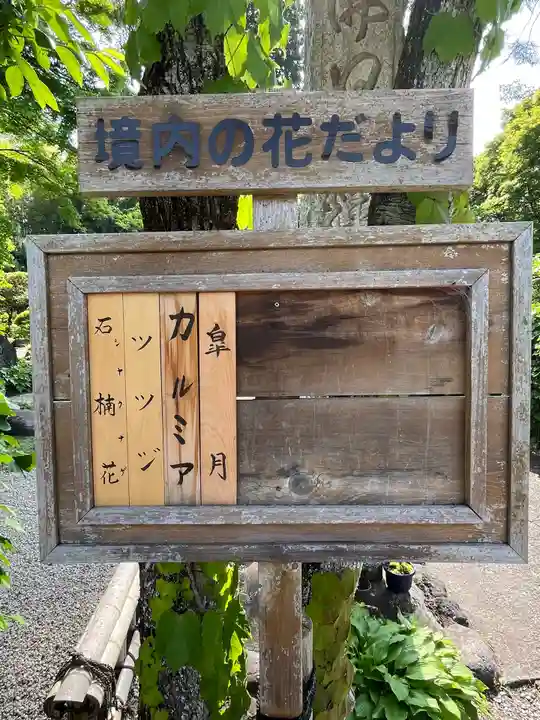 境内の花だより
皐月
カルミア
ツツジ
石楠花
シャクナゲ